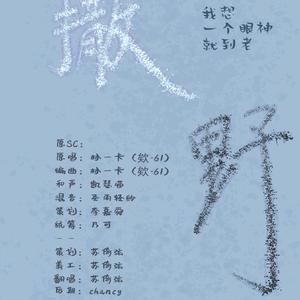 撒野
我想
一个眼神
就到老
原SC：
原唱：林一卡（欸·61）
编曲：林一卡（欸·61）
和声：凯瑟喵
混音：圣雨轻纱
策划：李嘉舜
统筹：乃可
--
策划：苏倚弦
美工：苏倚弦
翻唱：苏倚弦
后期：chancy